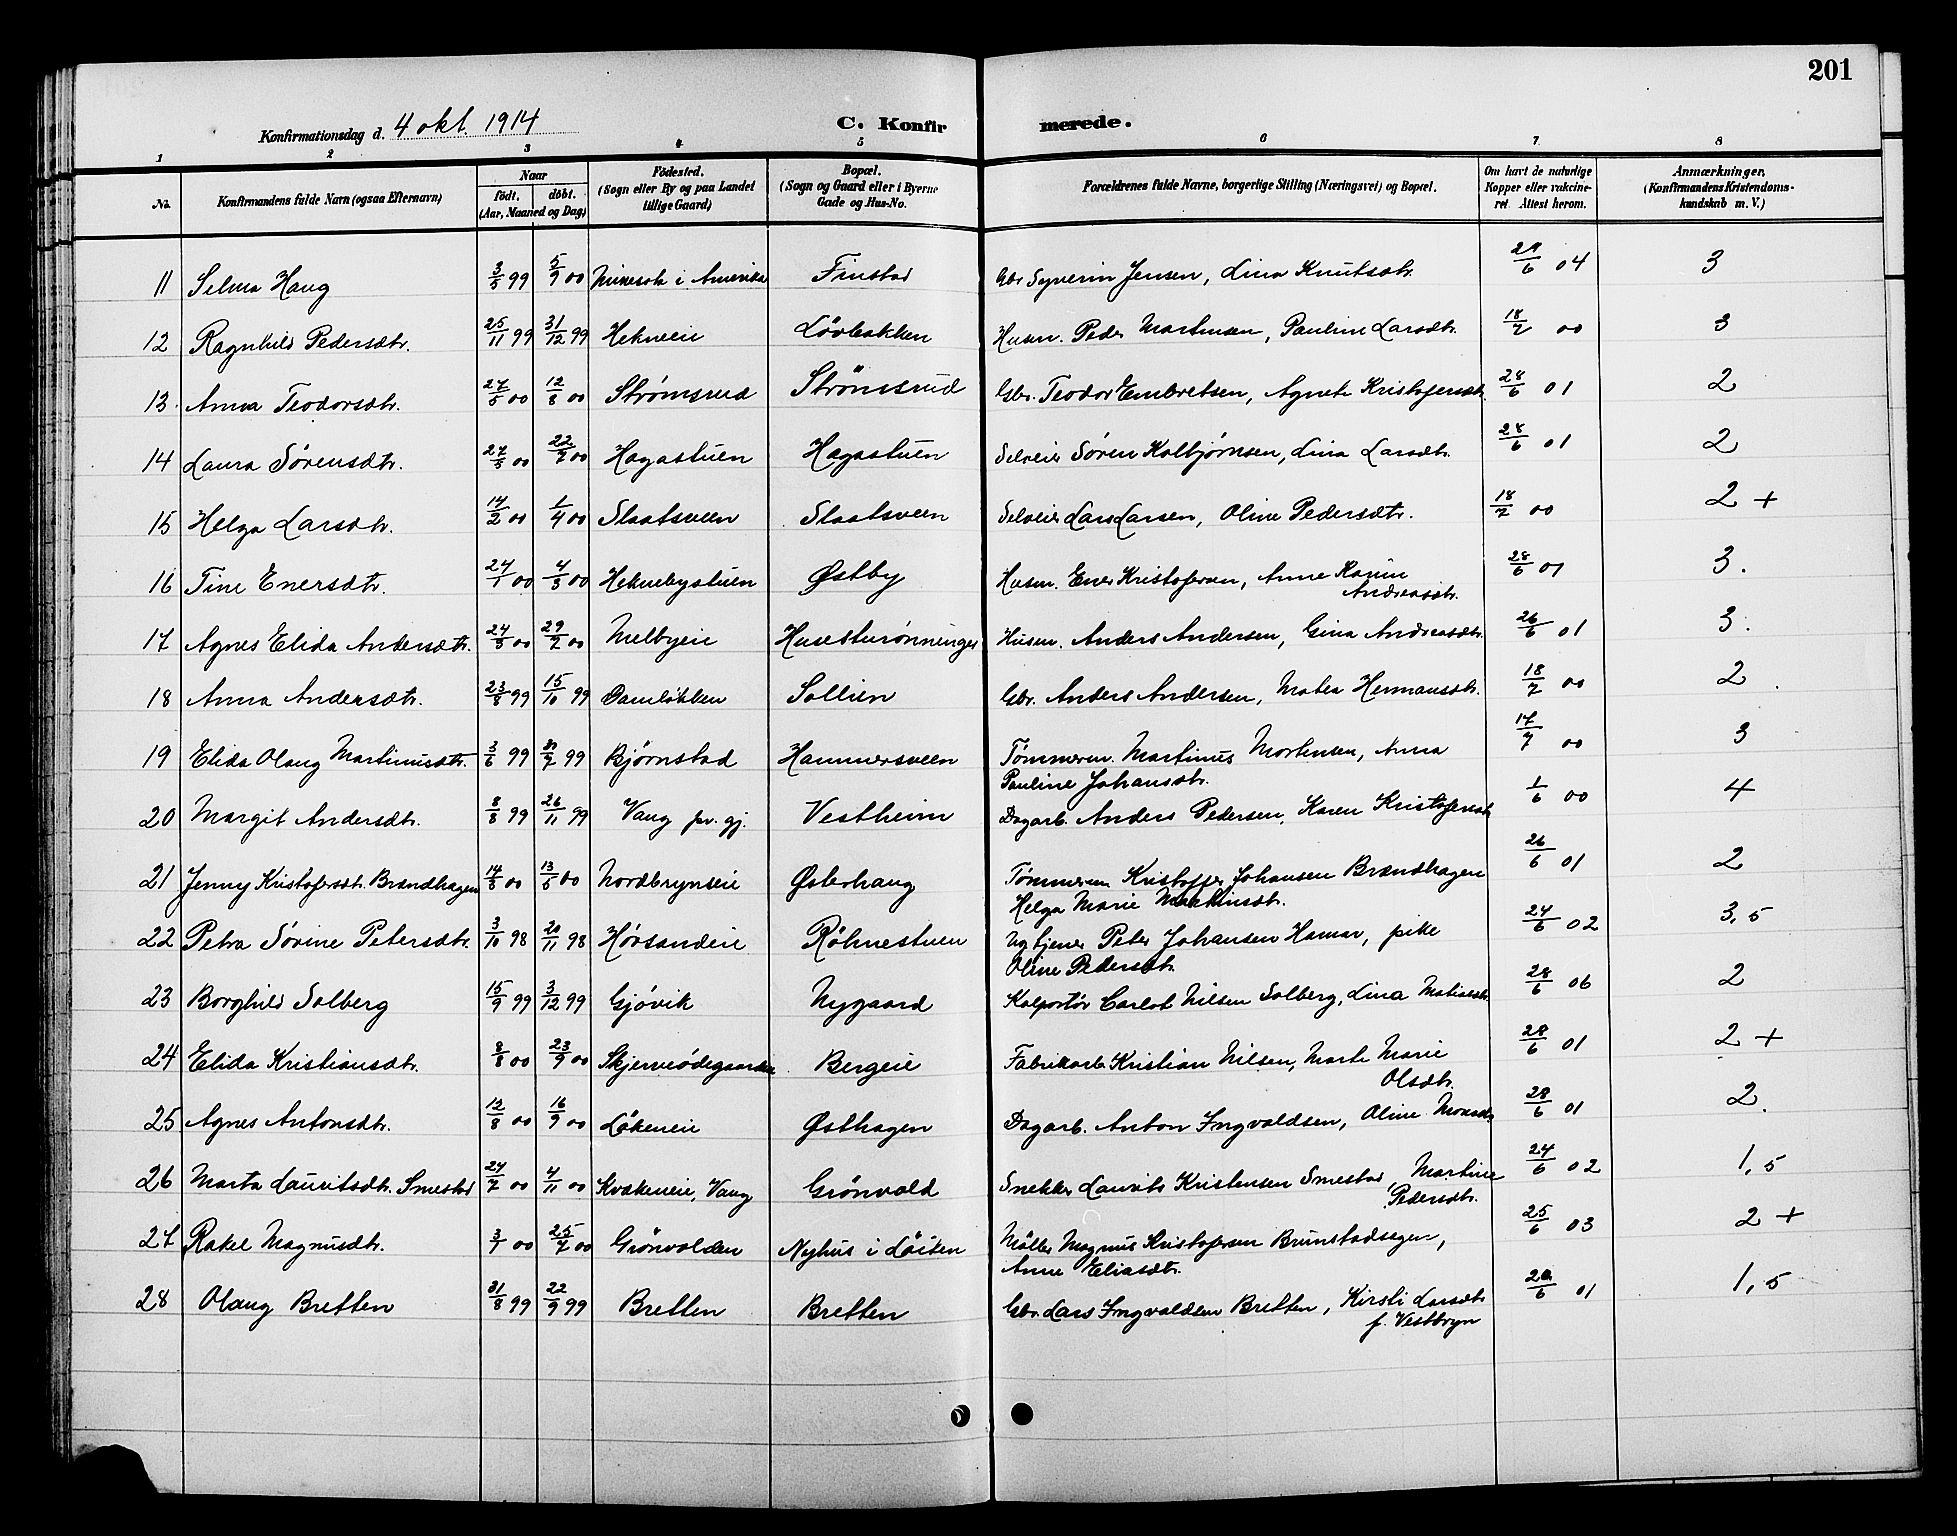 201
Konfirmationsdag d. 4 okt. 1914 C. Konfirmerede.
1 2 3 4 5 6 7 8
No. Konfirmandens fulde Navn (ogsaa Efternavn) Naar født. døbt. (Aar, Maaned og Dag) Fødested. (Sogn eller By og paa Landet tillige Gaard) Bopæl. (Sogn og Gaard eller i Byerne Gade og Hus-No. Forældrenes fulde Navne, borgerlige Stilling (Næringsvei) og Bopæl. Om havt de naturlige Kopper eller vakcineret. Attest herom. Anmærkninger, (Konfirmandens Kristendomskundskab m. V.)
11 Selma Haug 3/5 99 5/9 00 Minesota i Amerika Finstad Gbr. Syverin Jensen, Lina Knutsdtr. 29/6 04 3
12 Ragnhild Pedersdtr. 25/11 99 31/12 99 Hekneeie Løvbakken Husm. Peder Martinsen, Pauline Larsdtr. 18/7 00 3
13. Anna Teodorsdtr. 27/5 00 12/8 00 Strømsrud Strömsrud Gbr. Teodor Embretsen, Agnete Kristofersdtr. 28/6 01 2
14 Laura Sørensdtr. 27/5 00 22/7 00 Hagastuen Hagastuen Selveier Søren Kolbjørnsen, Lina Larsdtr. 28/6 01 2
15 Helga Larsdtr. 14/2 00 1/4 00 Slaatsveen Slaatsveen Selveier Lars Larsen, Oline Pedersdtr. 18/7 00 2 +
16 Tine Enersdtr. 24/1 00 4/3 00 Heknebystuen Østby Husm. Ener Kristofersen, Anne Karine Andreasdtr. 28/6 01 3.
17 Agnes Elida Andersdtr. 24/5 00 29/7 00 Melbyeie Husesturønningen Husm. Anders Andersen, Gina Andreasdtr. 26/6 01 3.
18 Anna Andersdtr. 23/8 99 15/10 99 Damløkken Sollien Gbr. Anders Andersen, Matea Hermansdtr. 18/7 00 2
19 Elida Olaug Martinusdtr. 3/6 99 30/7 99 Bjørnstad Hammersveen Tømmerm. Martinus Mortensen, Anna Pauline Johansdtr. 17/7 00 3
20 Margit Andersdtr. 8/8 99 26/11 99 Vang pr. gj. Vestheim Dagarb. Anders Pedersen, Karen Kristofersdtr. 1/6 00 4
21 Jenny Kristofersdtr. Brændhagen 14/3 00 13/5 00 Nordbrynseie Østerhaug Tømmerm. Kristoffer Johansen Brændhagen Helga Marie Martinsdtr. 26/6 01 2
22 Petra Sørine Petersdtr. 3/10 98 20/11 98 Hørsandeie Röhnestuen Ug tjener Peter Johansen Hamar, pike Oline Pedersdtr. 24/6 02 3,5
23 Borghild Solberg 15/9 99 3/12 99 Gjøvik Nygaard Kolportör Carlot Nilsen Solberg, Lina Matisdtr. 28/6 06 2
24 Elida Kristiansdtr. 8/8 00 23/9 00 Skjerneödegaarden Bergeie Fabrikarb. Kristian Nilsen, Marte Marie Olsdtr. 28/6 01 2 +
25 Agnes Antonsdtr. 12/8 00 16/9 00 Løkeneie Østhagen Dagarb. Anton Ingvaldsen, Oline Monsdtr. 28/6 01 2.
26 Marta Lauritsdtr. Smestad 24/7 00 4/11 00 Kvækeneie, Vang Grönvold Snekker Laurits Kristensen Smestad, Martine Pedersdtr. 24/6 02 1,5
27 Rakel Magnusdtr. 3/1 00 25/7 00 Grönvolden Nyhus i Löiten Möller Magnus Kristofersen Brunstadsegen, Anne Eliasdtr. 25/6 03 2 +
28 Olaug Bretten 31/8 99 22/9 99 Bretten Bretten Gbr. Lars Ingvaldsen Bretten, Kirsti Larsdtr f. Vestbryn 28/6 01 1,5